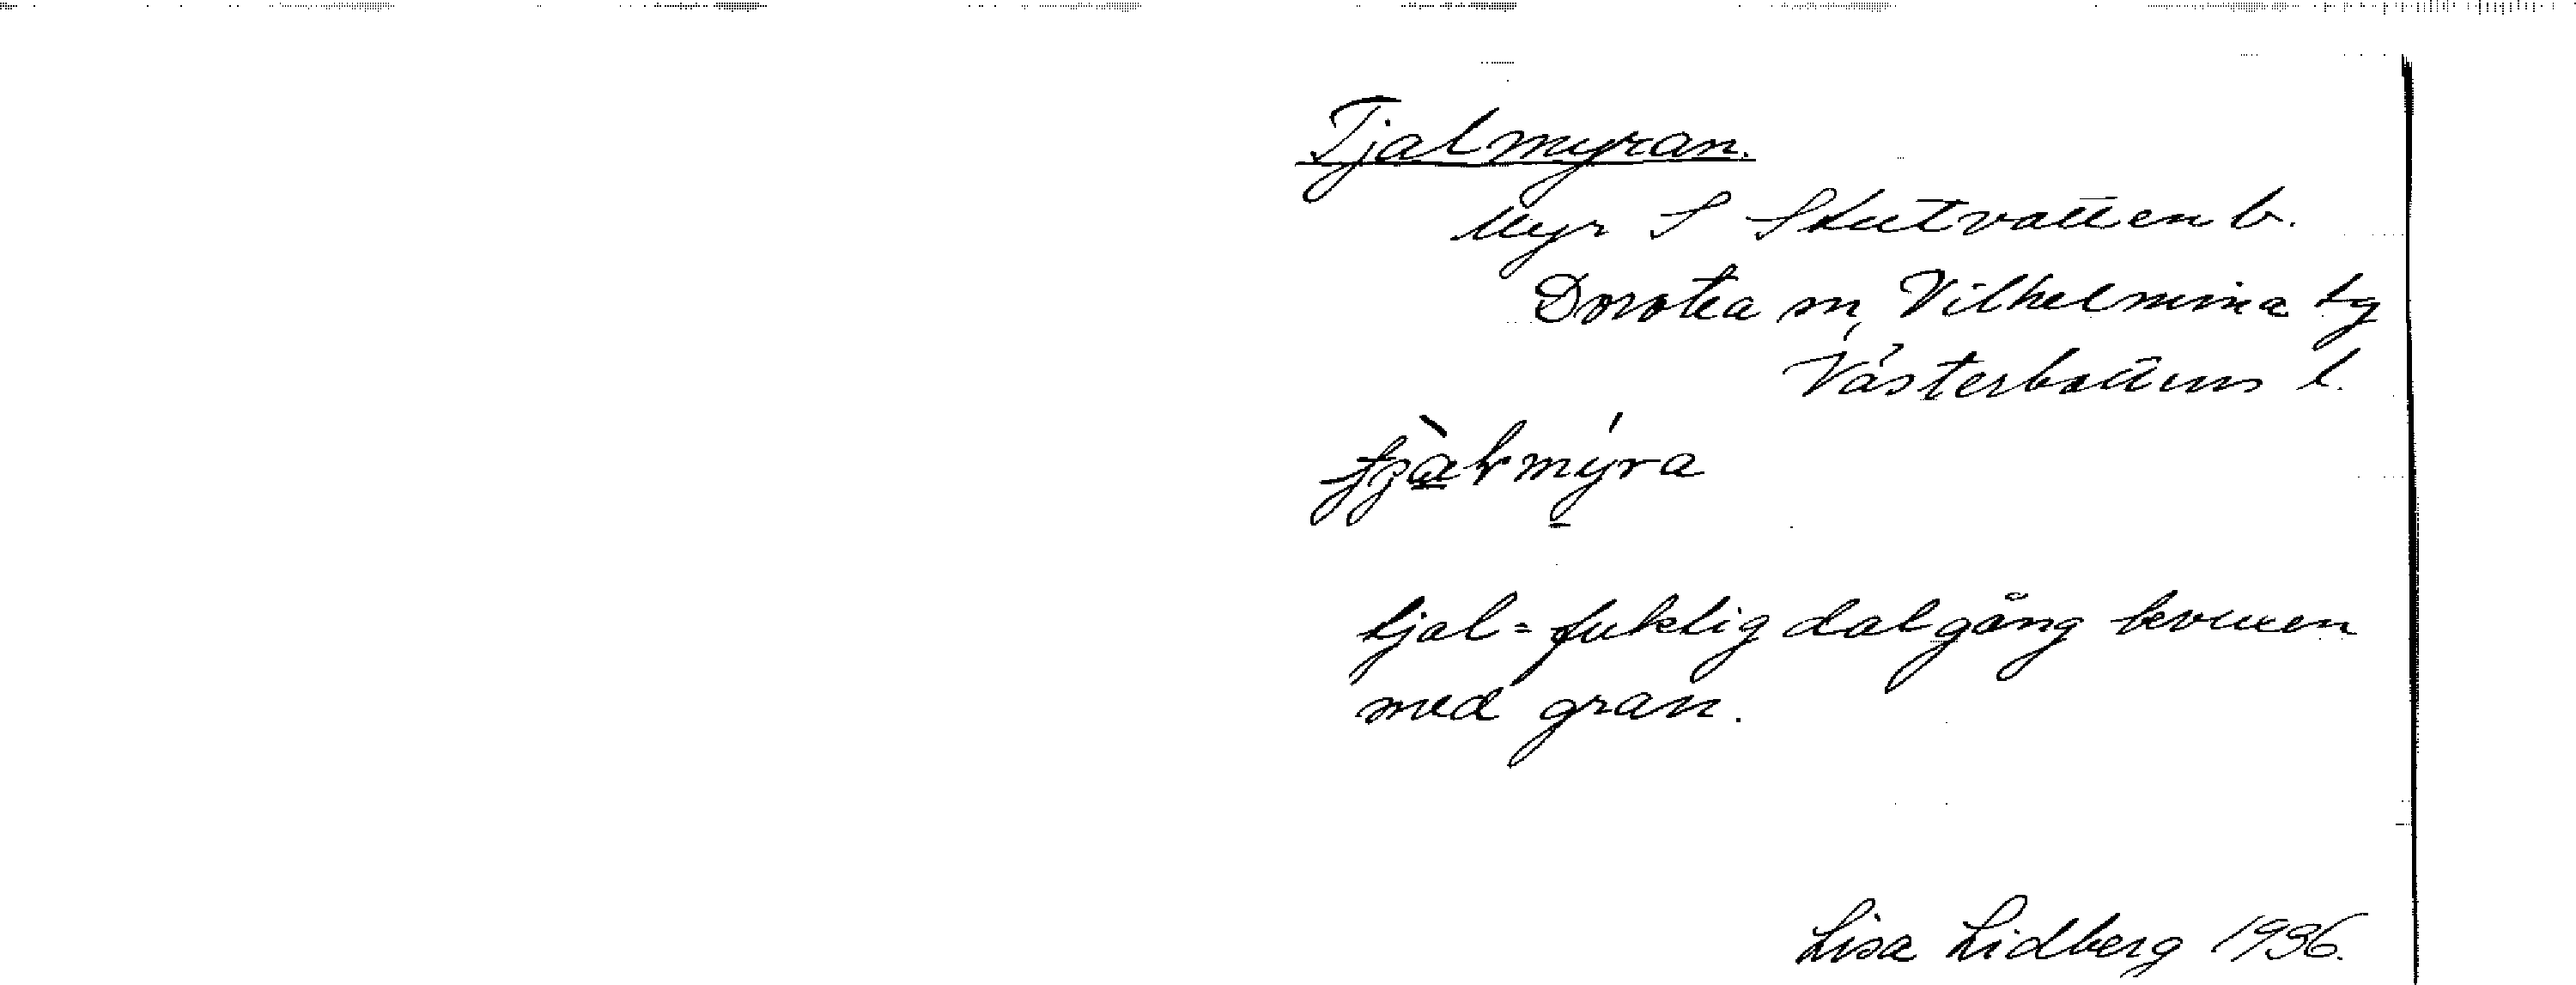 Tjalmyran.
Myr S Stutvattnen b.
Dorotea sn, Vilhelmina tg
Västerbottens l.
tjàlmýra
tjal = fuktig dalgång bevuxen
med gran.
Lisa Lidberg 1936.